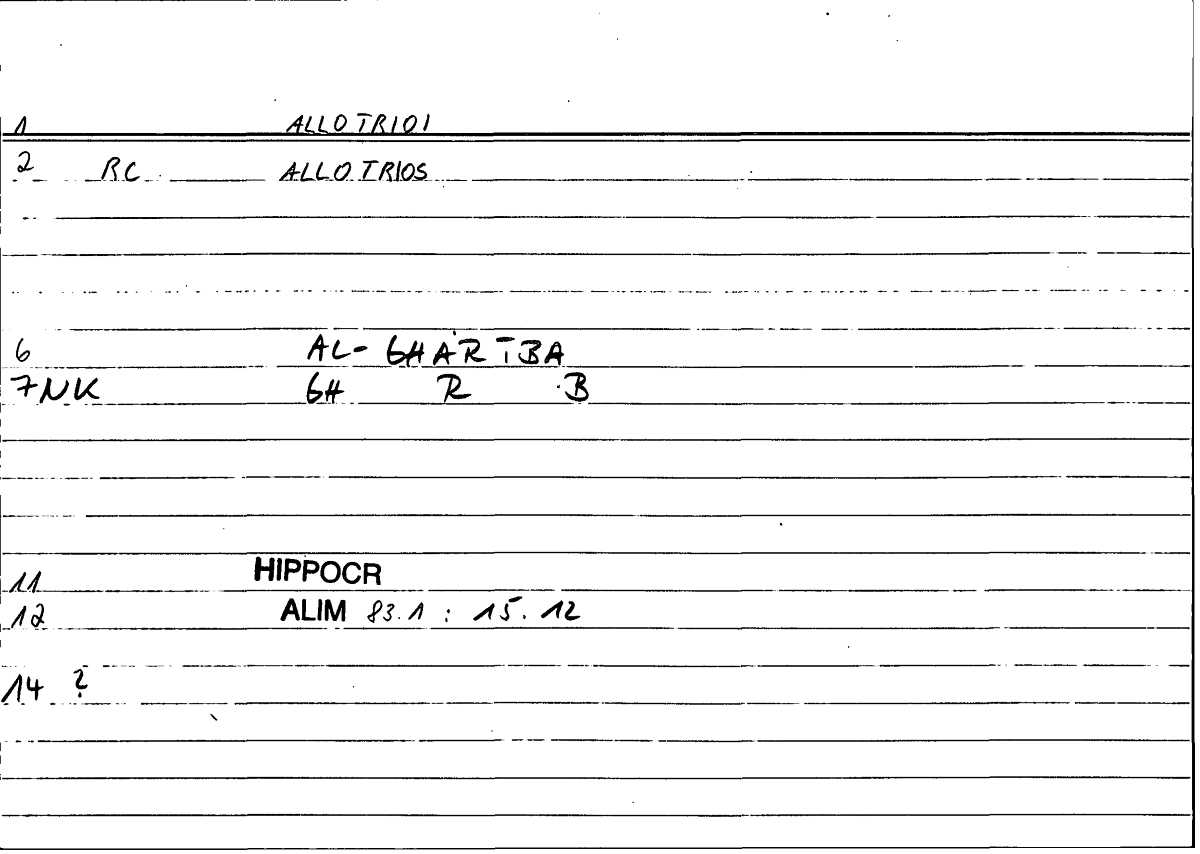 1 ALLOTRIOI
2 RC ALLOTRIOS
6 AL-GHARĪBA
7NK GH R B
11 HIPPOCR
12 ALIM 83.1 : 15.12
14 ?